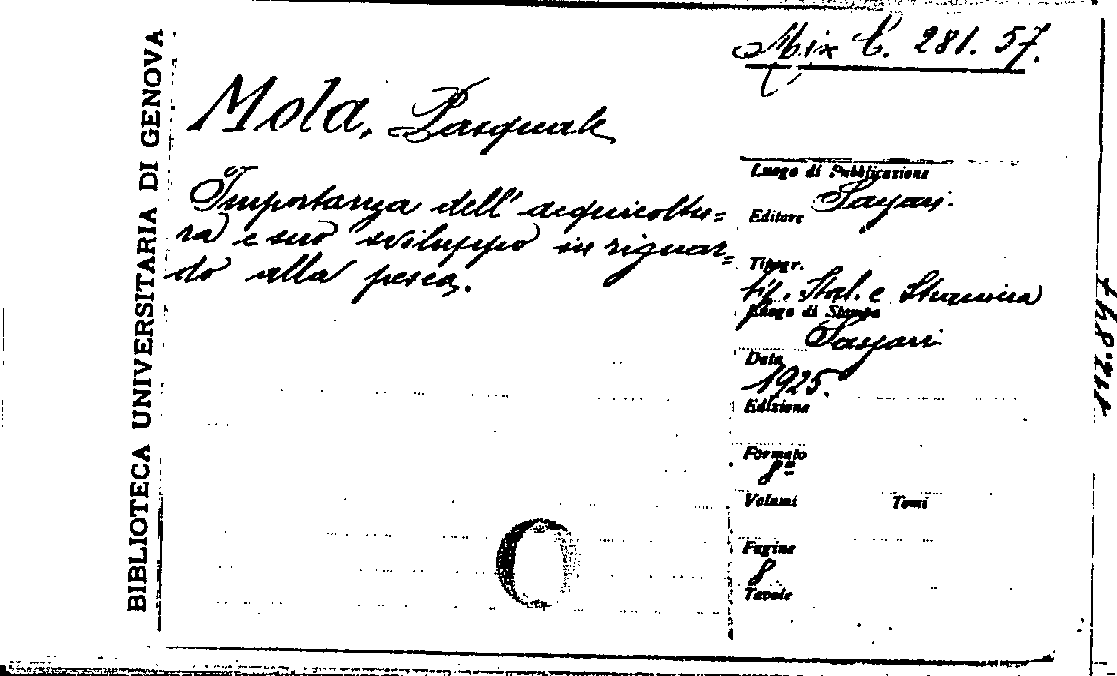 BIBLIOTECA UNIVERSITARIA DI GENOVA
Mix C. 281. 57.
Mola, Pasquale
Importanza dell' acquicoltu=
ra e suo sviluppo in riguar=
do alla pesca.
Luogo di Pubblicazione
Sassari.
Editore
Tipogr.
tip. Ital. e Straniera
Luogo di Stampa
Sassari
Data
1925.
Edizione
Formato
8º
Volumi Tomi
Pagine
8
Tavole